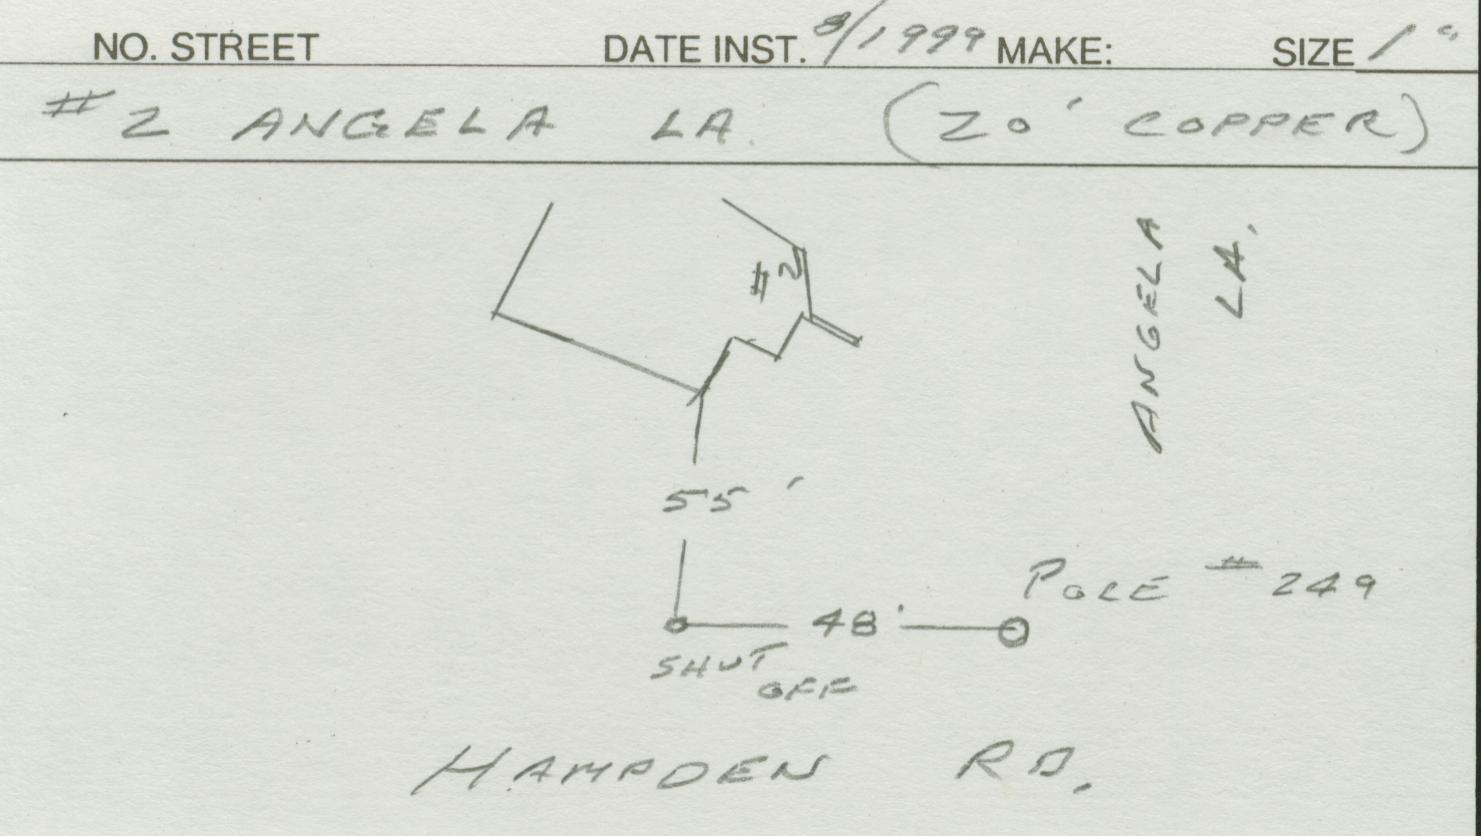 NO. STREET DATE INST. 8/1999 MAKE: SIZE 1"
#2 ANGELA LA. (20' COPPER)
#2
ANGELA
LA.
55'
POLE #249
48'
SHUT
OFF
HAMPDEN RD.